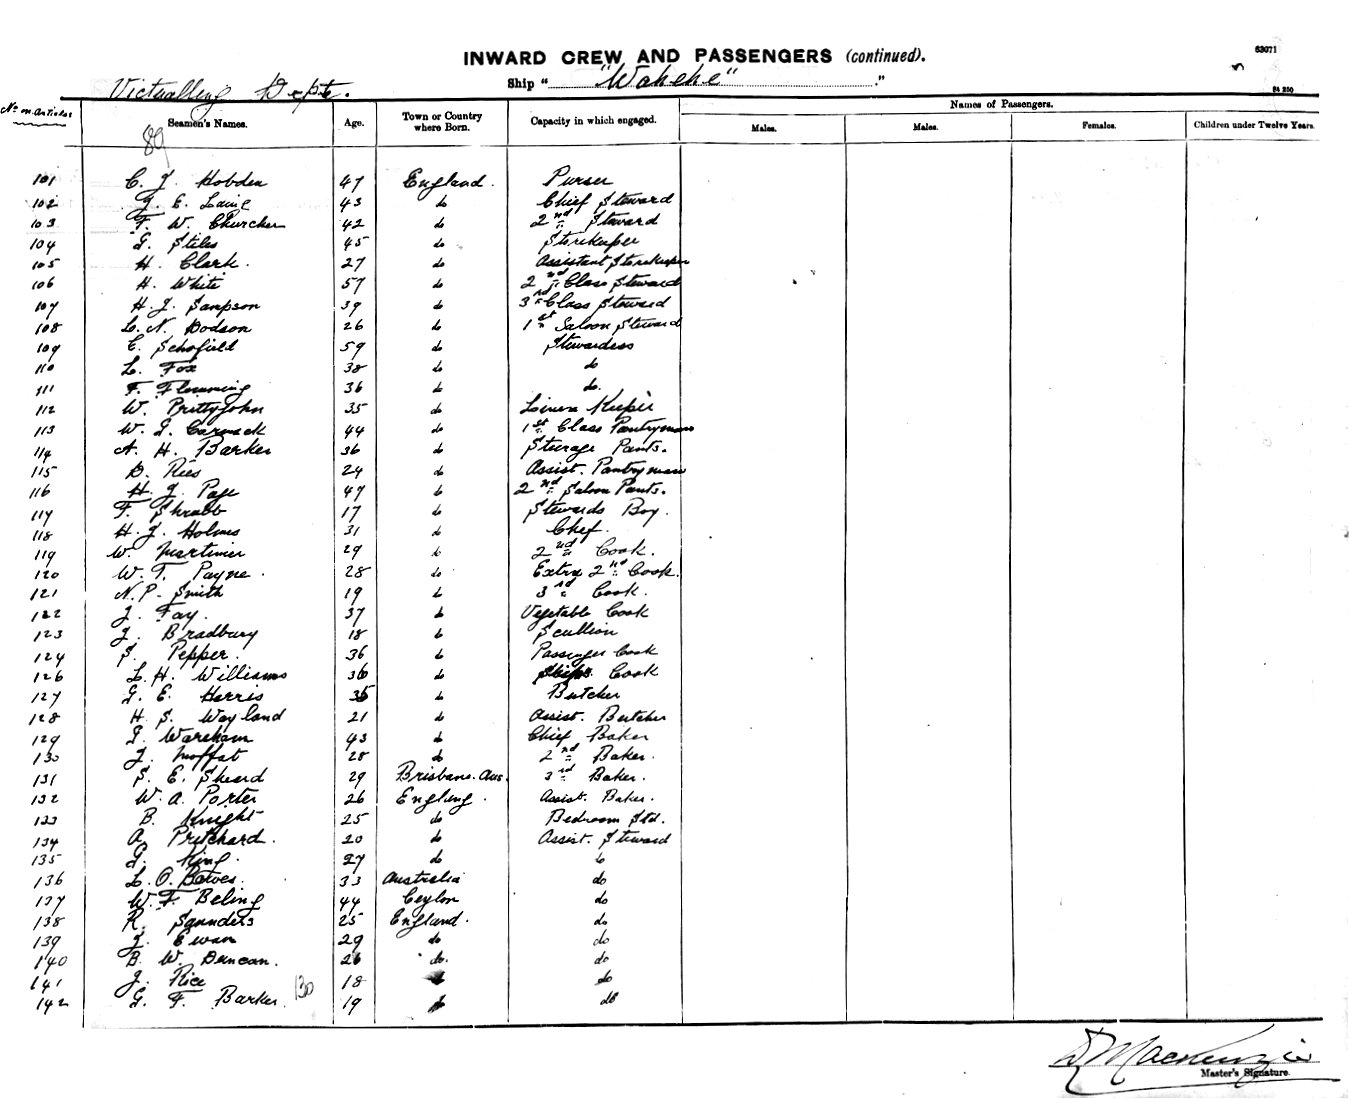 INWARD CREW AND PASSENGERS (continued).
63071
5
Victualling Dept.
Ship " "Wahehe" "
84 250
No. on Articles
Seamen's Names.
Age.
Town or Country where Born.
Capacity in which engaged.
Names of Passengers.
Males.
Males.
Females.
Children under Twelve Years.
89
101 C. J. Hobden 47 England. Purser
102 J. E. Laing 43 do Chief Steward
103 F. W. Churcher 42 do 2nd Steward
104 G. Stiles 45 do Storekeeper
105 H. Clark. 27 do Assistant Storekeeper
106 H. White 57 do 2nd Class Steward
107 H. J. Sampson 39 do 3rd Class Steward
108 L. N. Dodson 26 do 1st Saloon Steward
109 C. Schofield 59 do Stewardess
110 L. Fox 38 do do
111 F. Flemming 36 do do.
112 W. Prittyjohn 35 do Linen Keeper
113 W. G. Carmack 44 do 1st Class Pantryman
114 A. H. Barker 36 do Steerage Pants.
115 D. Rees 24 do Assist. Pantryman
116 H. J. Page 47 do 2nd Saloon Pants.
117 F. Shrubb 17 do Stewards Boy.
118 H. J. Holmes 31 do Chef.
119 W. Mortimer 29 do 2nd Cook.
120 W. T. Payne. 28 do Extra 2nd Cook.
121 N. P. Smith 19 do 3rd Cook.
122 J. Fay. 37 do Vegetable Cook
123 J. Bradbury 18 do Scullion
124 S. Pepper. 36 do Passenger Cook
126 L. H. Williams 36 do Ships Cook
127 G. E. Harris 35 do Butcher
128 H. S. Wayland 21 do Assist. Butcher
129 G. Wareham 43 do Chief Baker
130 J. Moffat 28 do 2nd Baker.
131 S. E. Sheard 29 Brisbane. Aus. 3rd Baker.
132 W. A. Porter 26 England. Assist. Baker.
133 B. Knight 25 do Bedroom Std.
134 A. Pritchard. 20 do Assist. Steward
135 G. King. 27 do do
136 L. O. Bowes. 33 Australia do
137 W. F. Beling 44 Ceylon do
138 R. Saunders 25 England. do
139 J. Ewan 29 do do
140 B. W. Duncan. 26 do. do
141 J. Rice 18 do do
142 G. F. Barker. 19 do do
130
D Mackenzie
Master's Signature.